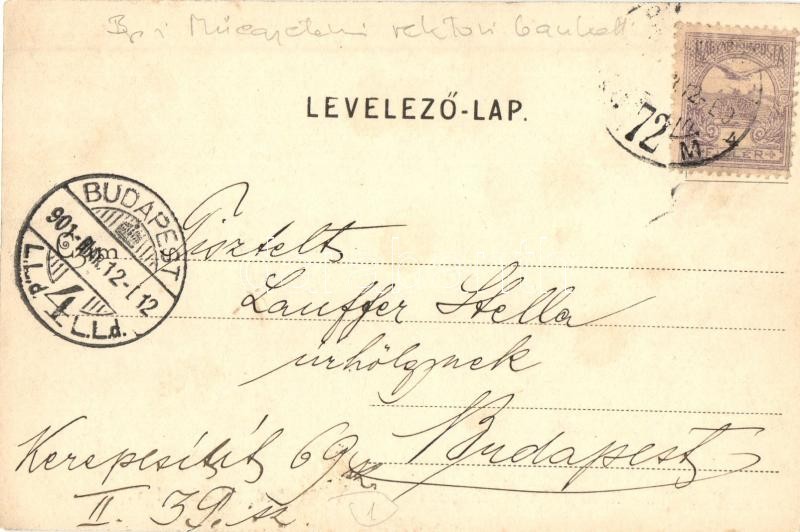 Bp-i Műegyetemi rektori bankett
MAGYAR KIR. POSTA
72
M
4
LEVELEZŐ-LAP.
BUDAPEST
901
12
12
4
L.L.d.
Czim
Tisztelt
Lauffer Stella
úrhölgynek
Budapest
Kerepesi út 69. sz.
II. 39. sz.
1